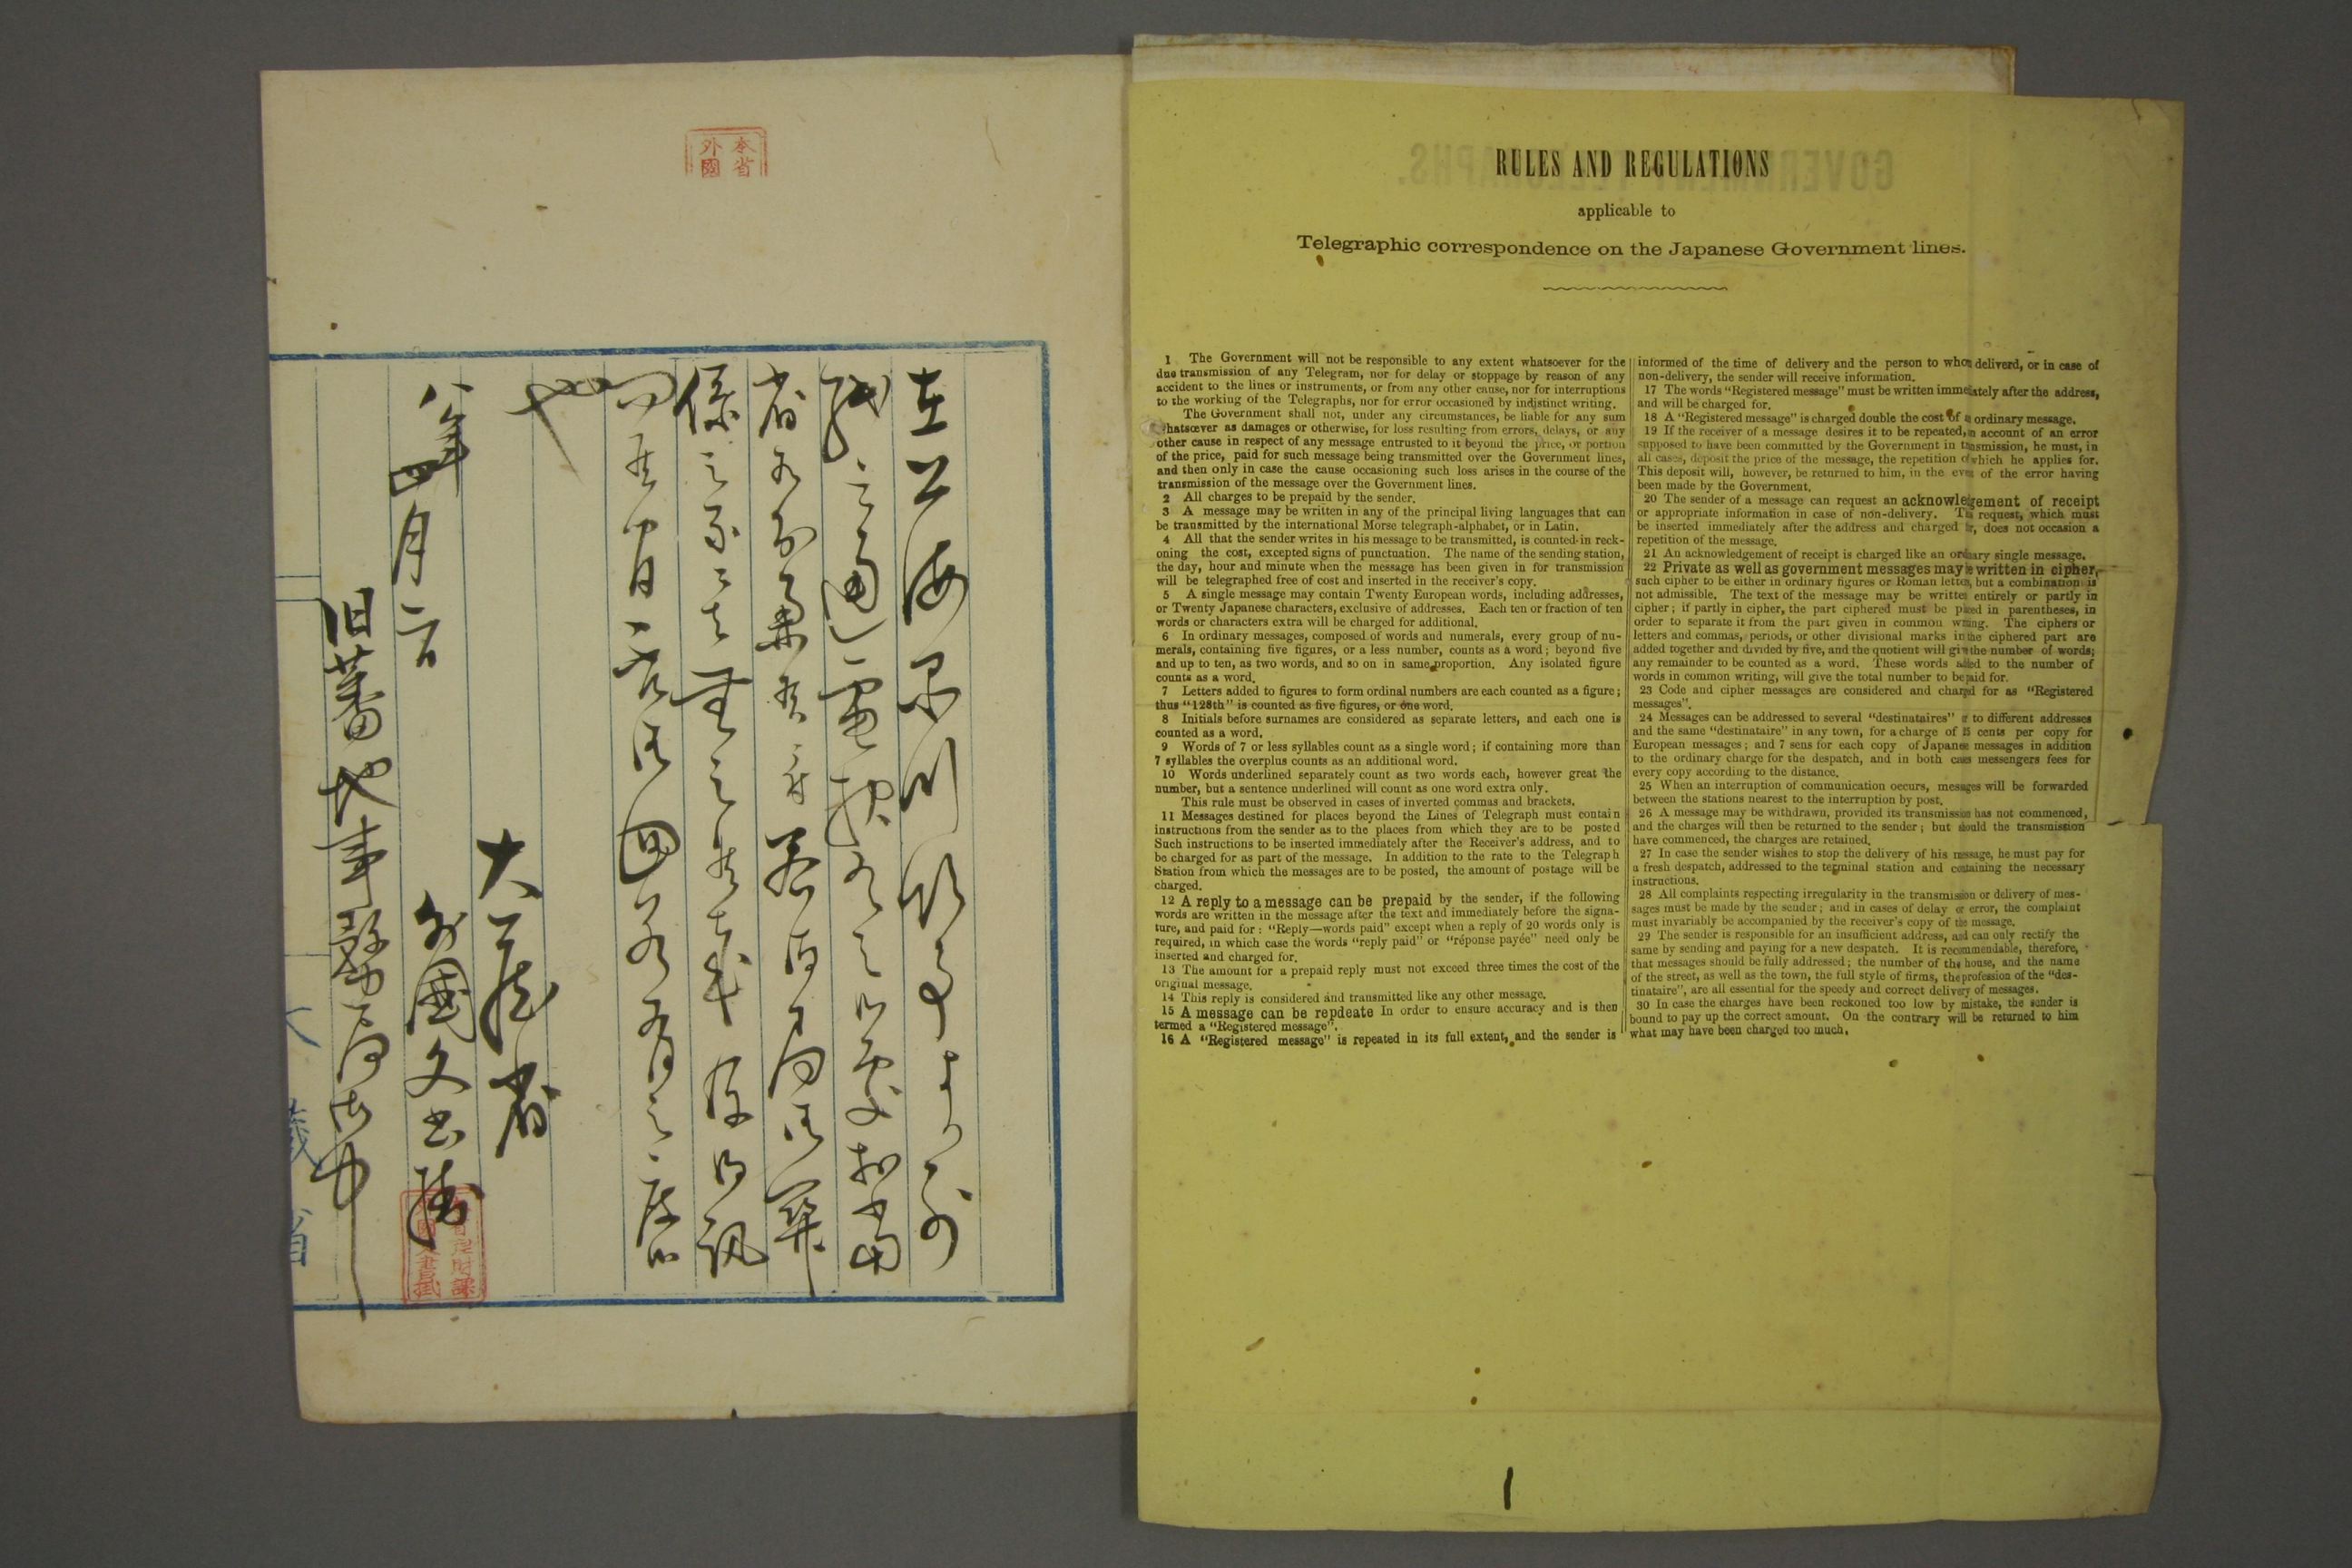 RULES AND REGULATIONS
applicable to
Telegraphic correspondence on the Japanese Government lines.
1 The Government will not be responsible to any extent whatsoever for the
due transmission of any Telegram, nor for delay or stoppage by reason of any
accident to the lines or instruments, or from any other cause, nor for interruptions
to the working of the Telegraphs, nor for error occasioned by indistinct writing.
The Government shall not, under any circumstances, be liable for any sum
whatsœver as damages or otherwise, for loss resulting from errors, delays, or any
other cause in respect of any message entrusted to it beyond the price, or portion
of the price, paid for such message being transmitted over the Government lines,
and then only in case the cause occasioning such loss arises in the course of the
transmission of the message over the Government lines.
2 All charges to be prepaid by the sender.
3 A message may be written in any of the principal living languages that can
be transmitted by the international Morse telegraph-alphabet, or in Latin.
4 All that the sender writes in his message to be transmitted, is counted in reck-
oning the cost, excepted signs of punctuation. The name of the sending station,
the day, hour and minute when the message has been given in for transmission
will be telegraphed free of cost and inserted in the receiver's copy.
5 A single message may contain Twenty European words, including addresses,
or Twenty Japanese characters, exclusive of addresses. Each ten or fraction of ten
words or characters extra will be charged for additional.
6 In ordinary messages, composed of words and numerals, every group of nu-
merals, containing five figures, or a less number, counts as a word; beyond five
and up to ten, as two words, and so on in same proportion. Any isolated figure
counts as a word.
7 Letters added to figures to form ordinal numbers are each counted as a figure;
thus "128th" is counted as five figures, or one word.
8 Initials before surnames are considered as separate letters, and each one is
counted as a word.
9 Words of 7 or less syllables count as a single word; if containing more than
7 syllables the overplus counts as an additional word.
10 Words underlined separately count as two words each, however great the
number, but a sentence underlined will count as one word extra only.
This rule must be observed in cases of inverted commas and brackets.
11 Messages destined for places beyond the Lines of Telegraph must contain
instructions from the sender as to the places from which they are to be posted
Such instructions to be inserted immediately after the Receiver's address, and to
be charged for as part of the message. In addition to the rate to the Telegraph
Station from which the messages are to be posted, the amount of postage will be
charged.
12 A reply to a message can be prepaid by the sender, if the following
words are written in the message after the text and immediately before the signa-
ture, and paid for: "Reply—words paid" except when a reply of 20 words only is
required, in which case the words "reply paid" or "réponse payée" need only be
inserted and charged for.
13 The amount for a prepaid reply must not exceed three times the cost of the
original message.
14 This reply is considered and transmitted like any other message.
15 A message can be repdeate In order to ensure accuracy and is then
termed a "Registered message".
16 A "Registered message" is repeated in its full extent, and the sender is
informed of the time of delivery and the person to whom deliverd, or in case of
non-delivery, the sender will receive information.
17 The words "Registered message" must be written immediately after the address,
and will be charged for.
18 A "Registered message" is charged double the cost of ordinary message.
19 If the receiver of a message desires it to be repeated, account of an error
supposed to have been committed by the Government in transmission, he must, in
all cases, deposit the price of the message, the repetition of which he applies for.
This deposit will, however, be returned to him, in the even of the error having
been made by the Government.
20 The sender of a message can request an acknowlegement of receipt
or appropriate information in case of non-delivery. request, which must
be inserted immediately after the address and charged does not occasion a
repetition of the message.
21 An acknowledgement of receipt is charged like an ordinary single message.
22 Private as well as government messages may be written in cipher,
such cipher to be either in ordinary figures or Roman letters, but a combination is
not admissible. The text of the message may be written entirely or partly in
cipher; if partly in cipher, the part ciphered must be placed in parentheses, in
order to separate it from the part given in common writing. The ciphers or
letters and commas, periods, or other divisional marks in the ciphered part are
added together and divided by five, and the quotient will give the number of words;
any remainder to be counted as a word. These words added to the number of
words in common writing, will give the total number to be paid for.
23 Code and cipher messages are considered and charged for as "Registered
messages".
24 Messages can be addressed to several "destinataires" or to different addresses
and the same "destinataire" in any town, for a charge of 25 cents per copy for
European messages; and 7 sens for each copy of Japanese messages in addition
to the ordinary charge for the despatch, and in both cases messengers fees for
every copy according to the distance.
25 When an interruption of communication occurs, messages will be forwarded
between the stations nearest to the interruption by post.
26 A message may be withdrawn, provided its transmission has not commenced,
and the charges will then be returned to the sender; but should the transmission
have commenced, the charges are retained.
27 In case the sender wishes to stop the delivery of his message, he must pay for
a fresh despatch, addressed to the terminal station and containing the necessary
instructions.
28 All complaints respecting irregularity in the transmission or delivery of mes-
sages must be made by the sender; and in cases of delay or error, the complaint
must invariably be accompanied by the receiver's copy of the message.
29 The sender is responsible for an insufficient address, and can only rectify the
same by sending and paying for a new despatch. It is recommendable, therefore,
that messages should be fully addressed; the number of the house, and the name
of the street, as well as the town, the full style of firms, the profession of the "des-
tinataire", are all essential for the speedy and correct delivery of messages.
30 In case the charges have been reckoned too low by mistake, the sender is
bound to pay up the correct amount. On the contrary will be returned to him
what may have been charged too much.
1
本省
外國
在上海品川領事より別
紙之通電報有之候処於当
省
係之
御回答有之度候
也
大蔵省
八年四月二日
外國文書掛
旧蕃地事務局御中
大蔵省